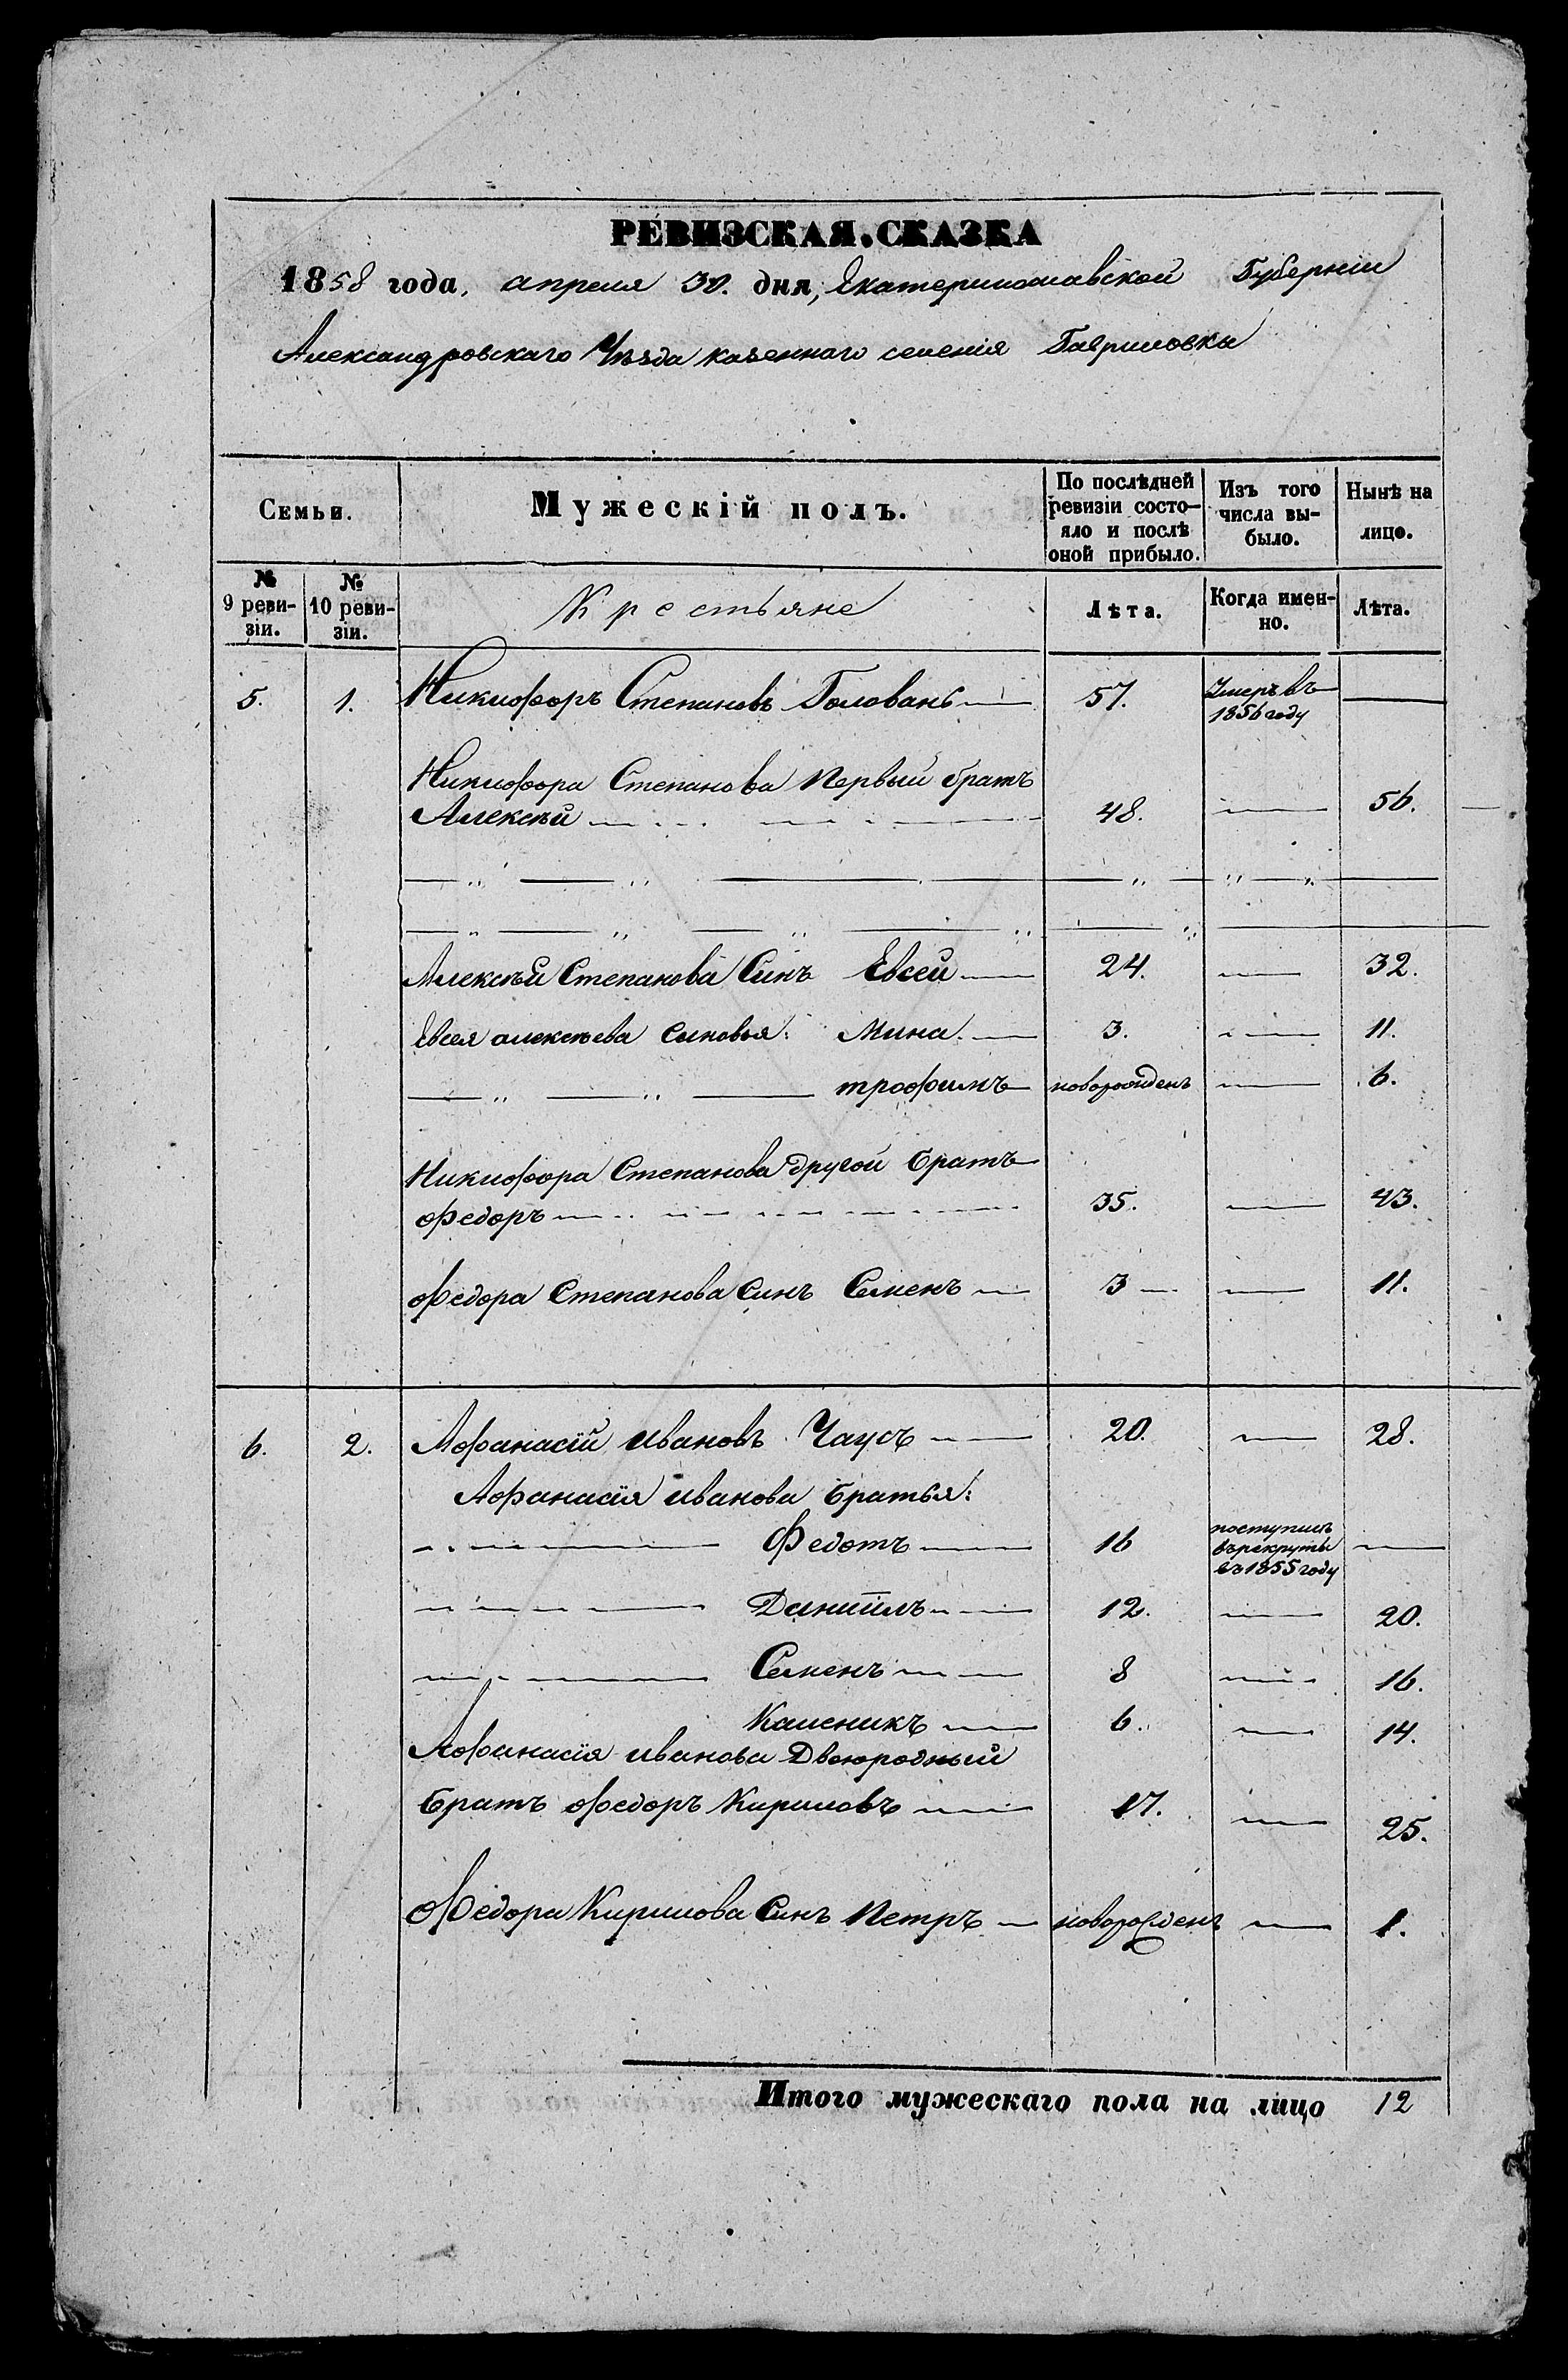 РЕВИЗСКАЯ.СКАЗКА
1858 года, апреля 30. дня, Екатеринославской Губерніи
Александровскаго Уѣзда казеннаго селенія Гавриловки
Семьи.
Мужескій полъ.
По послѣдней ревизіи состо-
яло и послѣ
оной прибыло.
Изъ того
числа вы-
было.
Нынѣ на
лицо.
№
9 реви-
зіи.
№
10 реви-
зіи.
Крестьяне
Лѣта.
Когда имен-
но.
Лѣта.
5. 1. Никифоръ Степановъ Головань 57. Умеръ въ
1856 году
Никифора Степанова Первый братъ
Алексѣй 48. 56.
Алексѣй Степанова Синъ Евсей 24. 32.
Евсея алексѣева сыновья: Мина. 3. 11.
трофимъ новорожденъ 6.
Никифора Степанова другой братъ
Федоръ 35. 43.
Федора Степанова Синъ Семенъ 3 11.
6. 2. Афанасій Ивановъ Чаусъ 20. 28.
Афанасія Иванова братья:
Федотъ 16 поступилъ
въ рекруты
въ 1855 году
Даніилъ 12. 20.
Семенъ 8 16.
Каленикъ 6. 14.
Афанасія Иванова Двоюродный
братъ Федоръ Кириловъ 17. 25.
Федора Кирилова Синъ Петръ новорожденъ 1.
Итого мужескаго пола на лицо 12